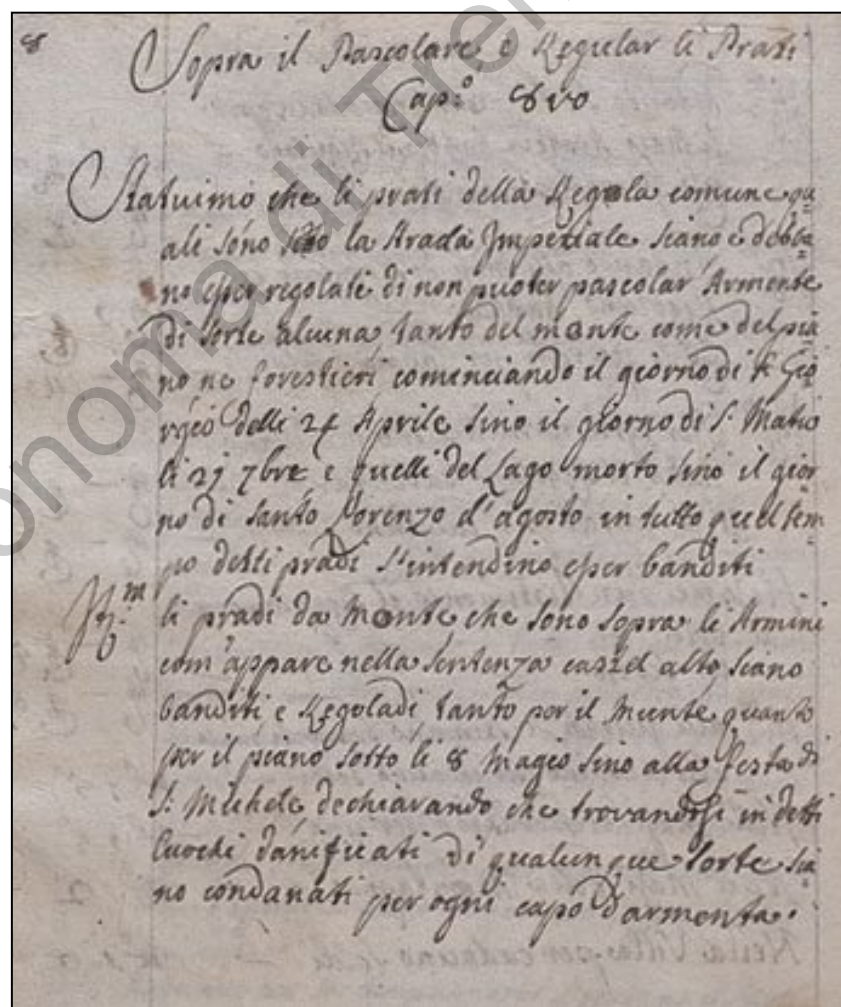 8
Sopra il Pascolare e Regular li Prati
Cap:º 8vo
Statuimo che li prati della Regola comune qu=
ali sono sotto la strada Imperiale siano e debba=
no esser regolati di non puoter pascolar Armente
di sorte alcuna, tanto del monte come del pia=
no ne forestieri cominciando il giorno di S. Gio=
rgio delli 24 Aprile sino il giorno di S. Matio
li 21 7bre e quelli del Lago morto sino il gior=
no di Santo Lorenzo d'agosto in tutto quel tem=
po detti pradi s'intendino esser banditi
It:m li pradi da Monte che sono sopra li Armini
com'appare nella sentenza castel alto siano
banditi e Regoladi tanto per il Munte, quanto
per il piano sotto li 8 Magio sino alla festa di
S: Michele, dechiarando che trovandosi in detti
luochi danificati di qualunque sorte sia=
no condanati per ogni capo d'armenta.
onoma di Tren